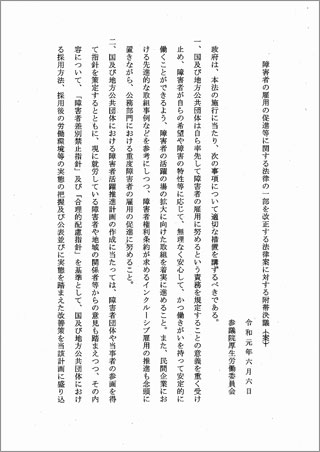 障害者の雇用の促進等に関する法律の一部を改正する法律案に対する附帯決議
令和元年六月六日
参議院厚生労働委員会
政府は、本法の施行に当たり、次の事項について適切な措置を講ずるべきである。
一、国及び地方公共団体は自ら率先して障害者の雇用に努めるという責務を規定することの意義を重く受け
止め、障害者が自らの希望や障害の特性等に応じて、無理なく安心して、かつ働きがいを持って安定的に
働くことができるよう、障害者の活躍の場の拡大に向けた取組を着実に進めること。また、民間企業にお
ける先進的な取組事例などを参考にしつつ、障害者権利条約が求めるインクルーシブ雇用の推進も念頭に
置きながら、公務部門における重度障害者の雇用の促進に努めること。
二、国及び地方公共団体における障害者活躍推進計画の作成に当たっては、障害者団体や当事者の参画を得
て指針を策定するとともに、現に就労している障害者や地域の関係者等からの意見も踏まえつつ、その内
容について、「障害者差別禁止指針」及び「合理的配慮指針」を基準として、国及び地方公共団体におけ
る採用方法、採用後の労働環境等の実態の把握及び公表並びに実態を踏まえた改善策を当該計画に盛り込